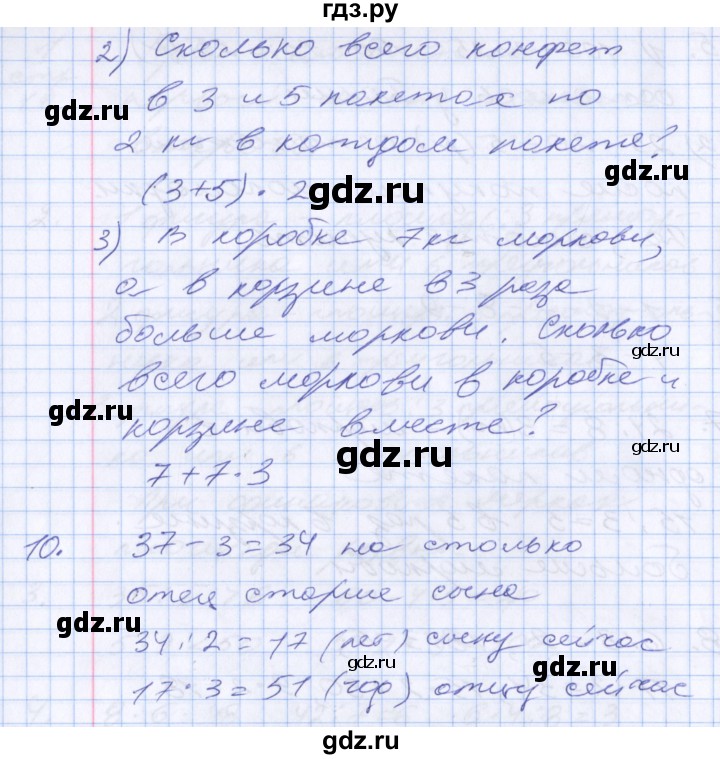 гдз.ру
2) Сколько всего конфет
в 3 и 5 пакетах по
gdz.ru
2 кг в каждом пакете?
gdz.ru
(3+5) · 2
gdz.ru
3) В коробке 7кг моркови,
а в корзине в 3 раза
больше моркови. Сколько
gdz.ru
всего моркови в коробке и
gdz.ru
корзине вместе?
gdz.ru
7+7·3
10. 37-3=34 на столько
gdz.ru
отец старше сына
gdz.ru
34:2=17 (лет) сыну сейчас
gdz.ru
gdz.ru
17·3=51 (год) отцу сейчас
gdz.ru
gdz.ru